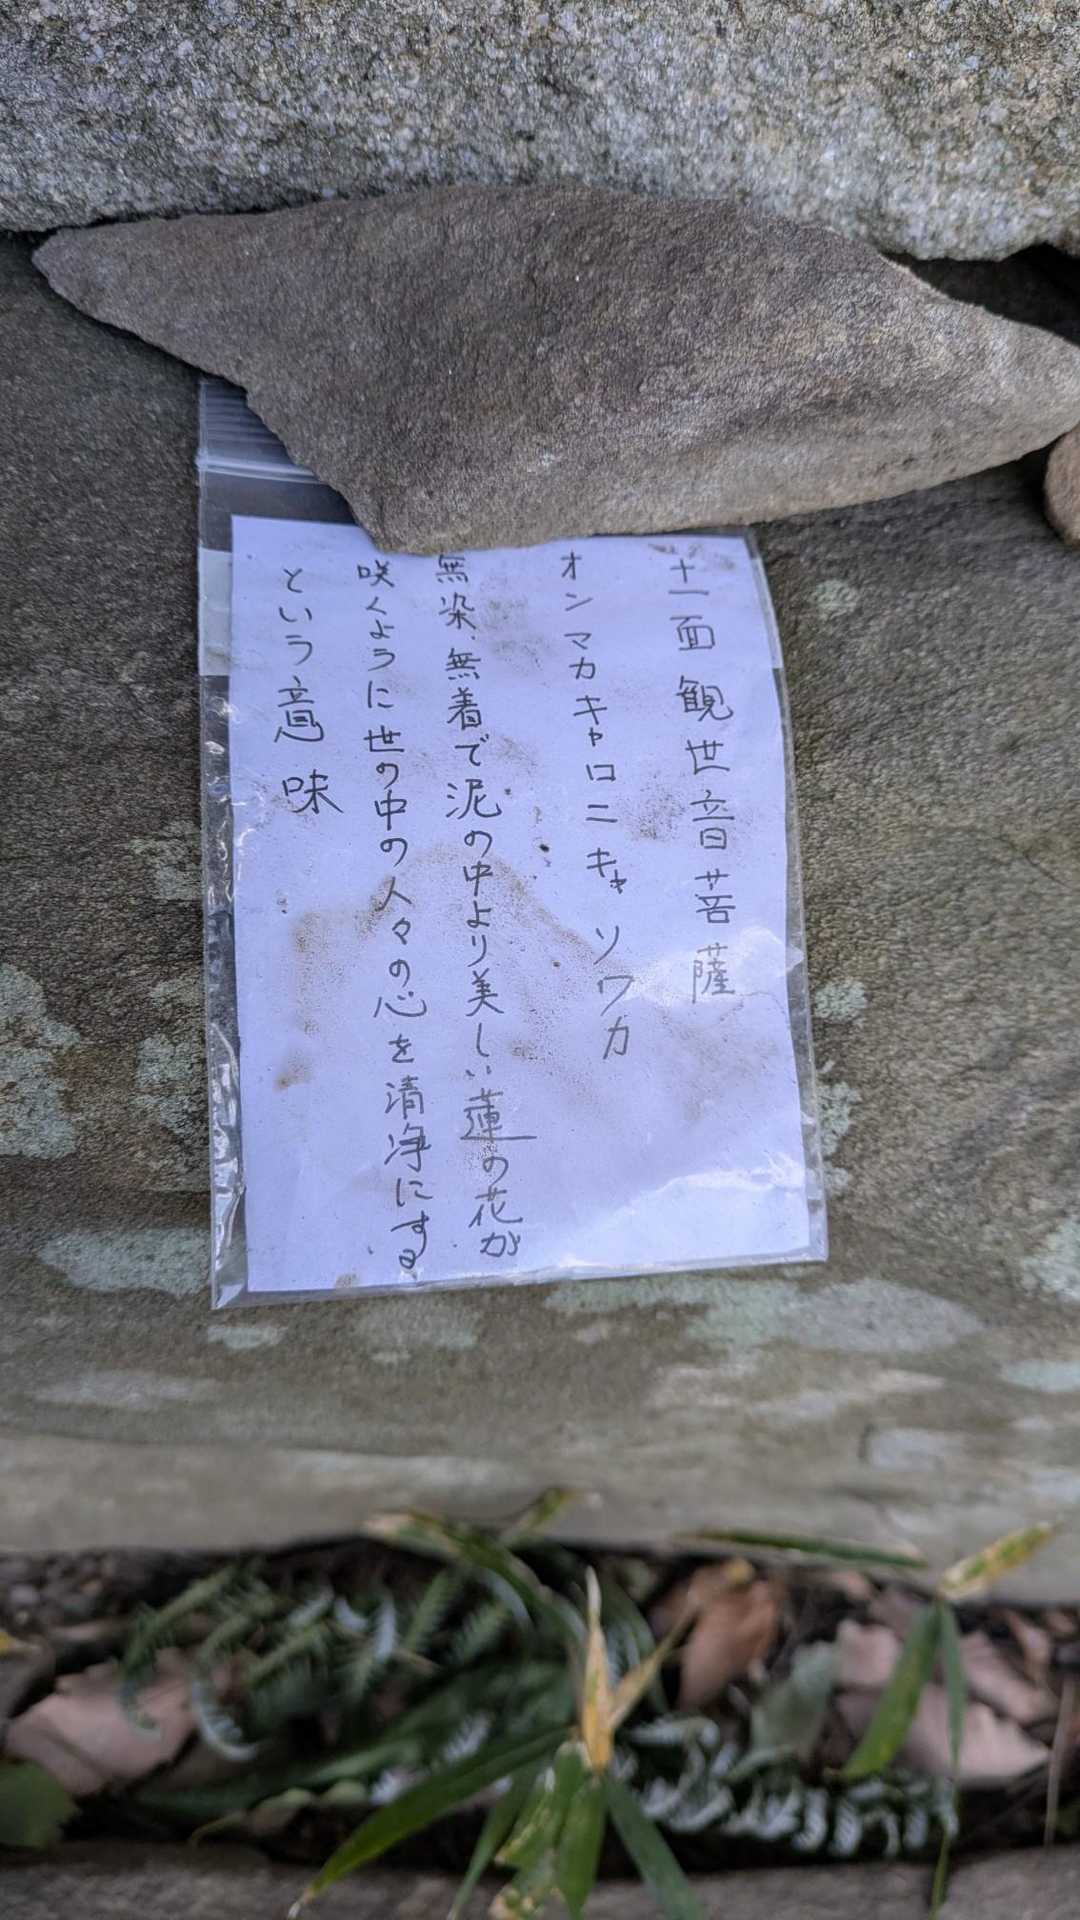 十一面観世音菩薩
オンマカキャロニキャソワカ
無染、無着で泥の中より美しい蓮の花が
咲くように世の中の人々の心を清浄にする
という意味